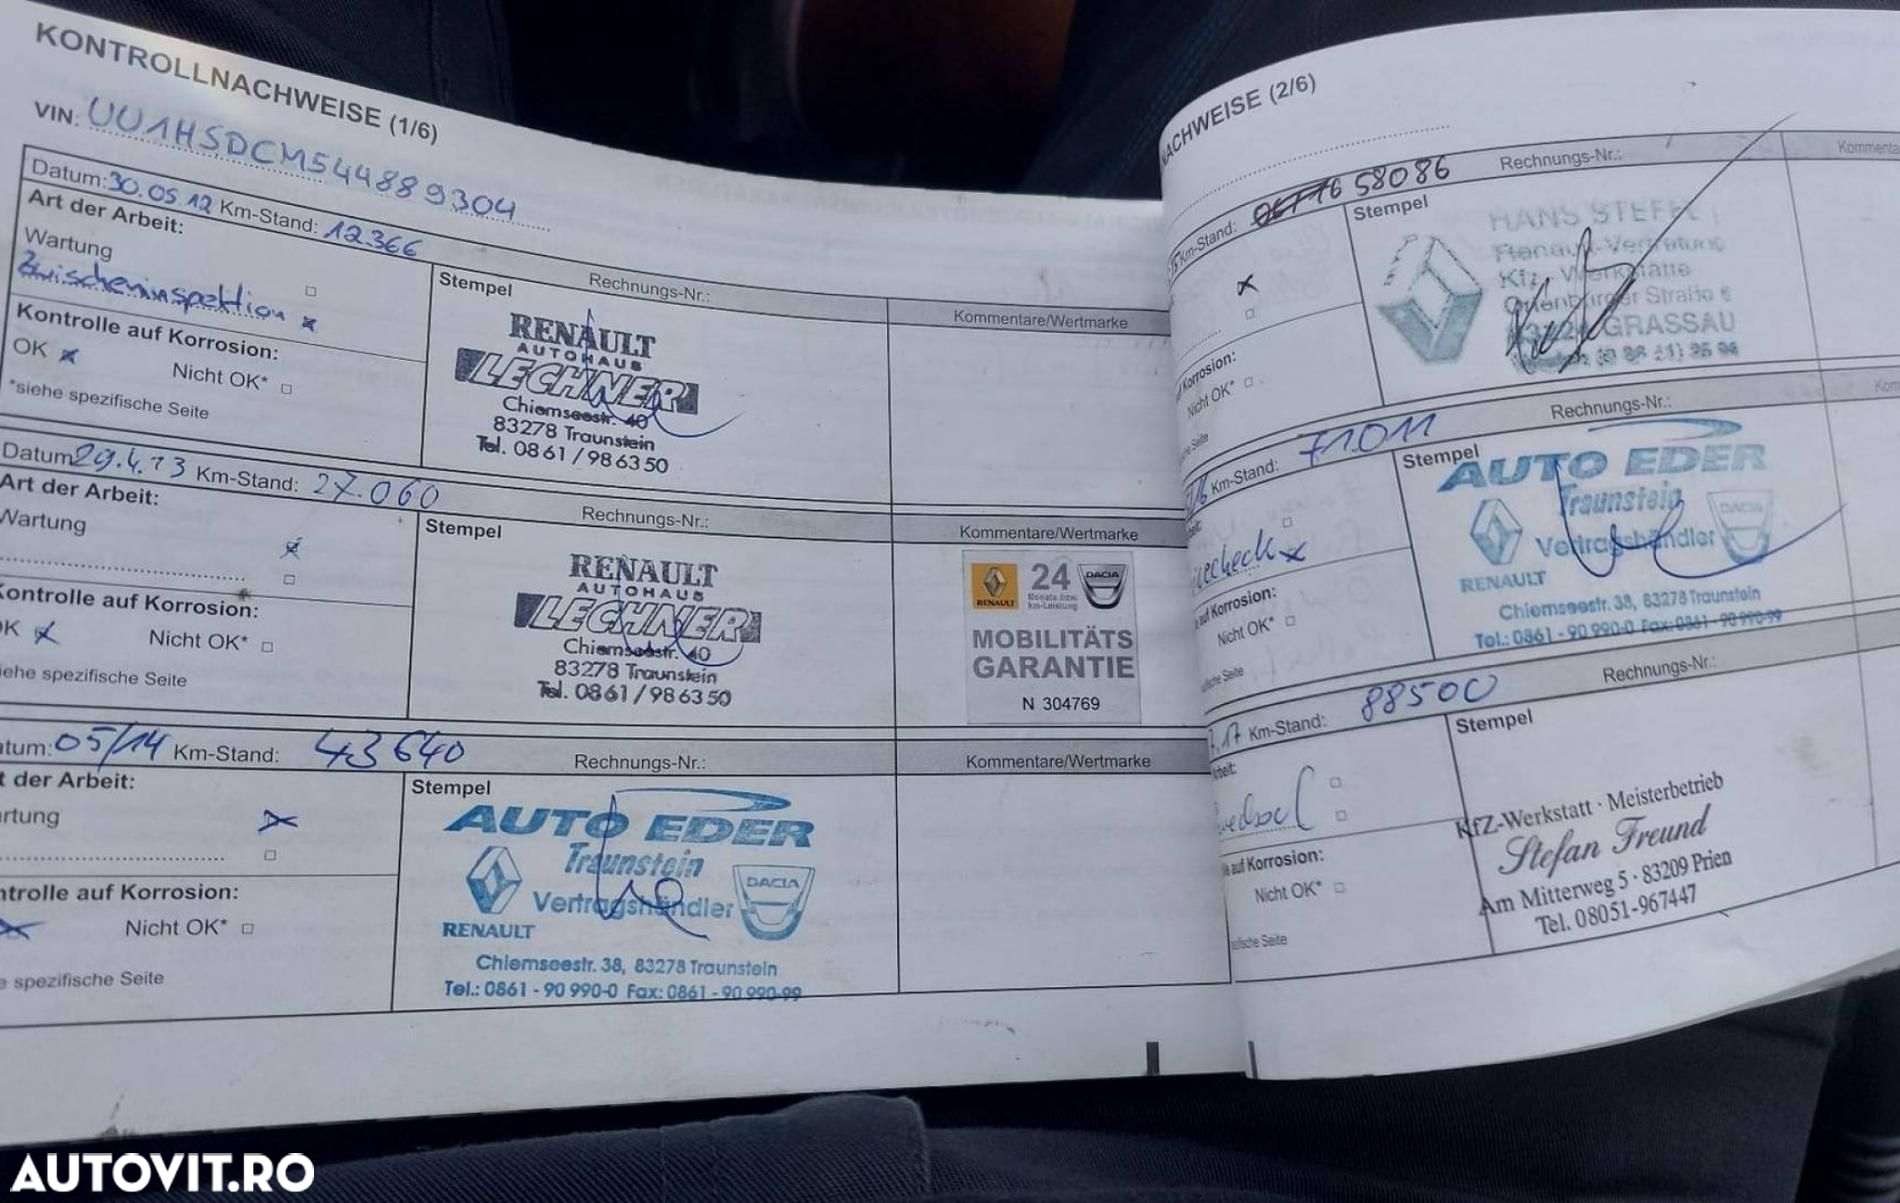 KONTROLLNACHWEISE (1/6)
VIN: UU1HSDCM544889304
Datum: 30.05.12 Km-Stand: 12.366 Rechnungs-Nr.:
Art der Arbeit:
Wartung
Zwischeninspektion x
Kontrolle auf Korrosion:
OK x Nicht OK*
*siehe spezifische Seite
Stempel
RENAULT
AUTOHAUS
LECHNER
Chiemseestr. 40
83278 Traunstein
Tel. 0861/98 63 50
Kommentare/Wertmarke
Datum 29.4.13 Km-Stand: 27.060 Rechnungs-Nr.:
Art der Arbeit:
Wartung x
Kontrolle auf Korrosion:
OK x Nicht OK*
siehe spezifische Seite
Stempel
RENAULT
AUTOHAUS
LECHNER
Chiemseestr. 40
83278 Traunstein
Tel. 0861/98 63 50
Kommentare/Wertmarke
RENAULT 24 DACIA
Monats bzw.
km-Leistung
MOBILITÄTS
GARANTIE
N 304769
atum: 05/14 Km-Stand: 43640 Rechnungs-Nr.:
t der Arbeit:
artung x
ntrolle auf Korrosion:
x Nicht OK*
e spezifische Seite
Stempel
AUTO EDER
Traunstein
Vertragshändler
RENAULT DACIA
Chiemseestr. 38, 83278 Traunstein
Tel.: 0861 - 90 990-0 Fax: 0861 - 90 990-99
Kommentare/Wertmarke
NACHWEISE (2/6)
Km-Stand: 58086 Rechnungs-Nr.:
x
Korrosion:
Nicht OK*
Stempel
HANS STEFFL
Renault-Vertretung
Kfz.-Werkstätte
GRASSAU
Kommenta
Km-Stand: 71.011 Rechnungs-Nr.:
x
auf Korrosion:
Nicht OK*
Seite
Stempel
AUTO EDER
Traunstein
Vertragshändler
RENAULT DACIA
Chiemseestr. 38, 83278 Traunstein
Tel.: 0861 - 90 990-0 Fax: 0861 - 90 990-99
Kom
7.17 Km-Stand: 88500 Rechnungs-Nr.:
auf Korrosion:
Nicht OK*
Seite
Stempel
KfZ-Werkstatt · Meisterbetrieb
Stefan Freund
Am Mitterweg 5 · 83209 Prien
Tel. 08051-967447
AUTOVIT.RO